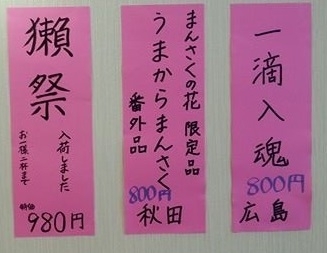 一滴入魂
800円
広島
まんさくの花 限定品
うまからまんさく
番外品
800円
秋田
獺祭
入荷しました
お一様二杯まで
特価
980円